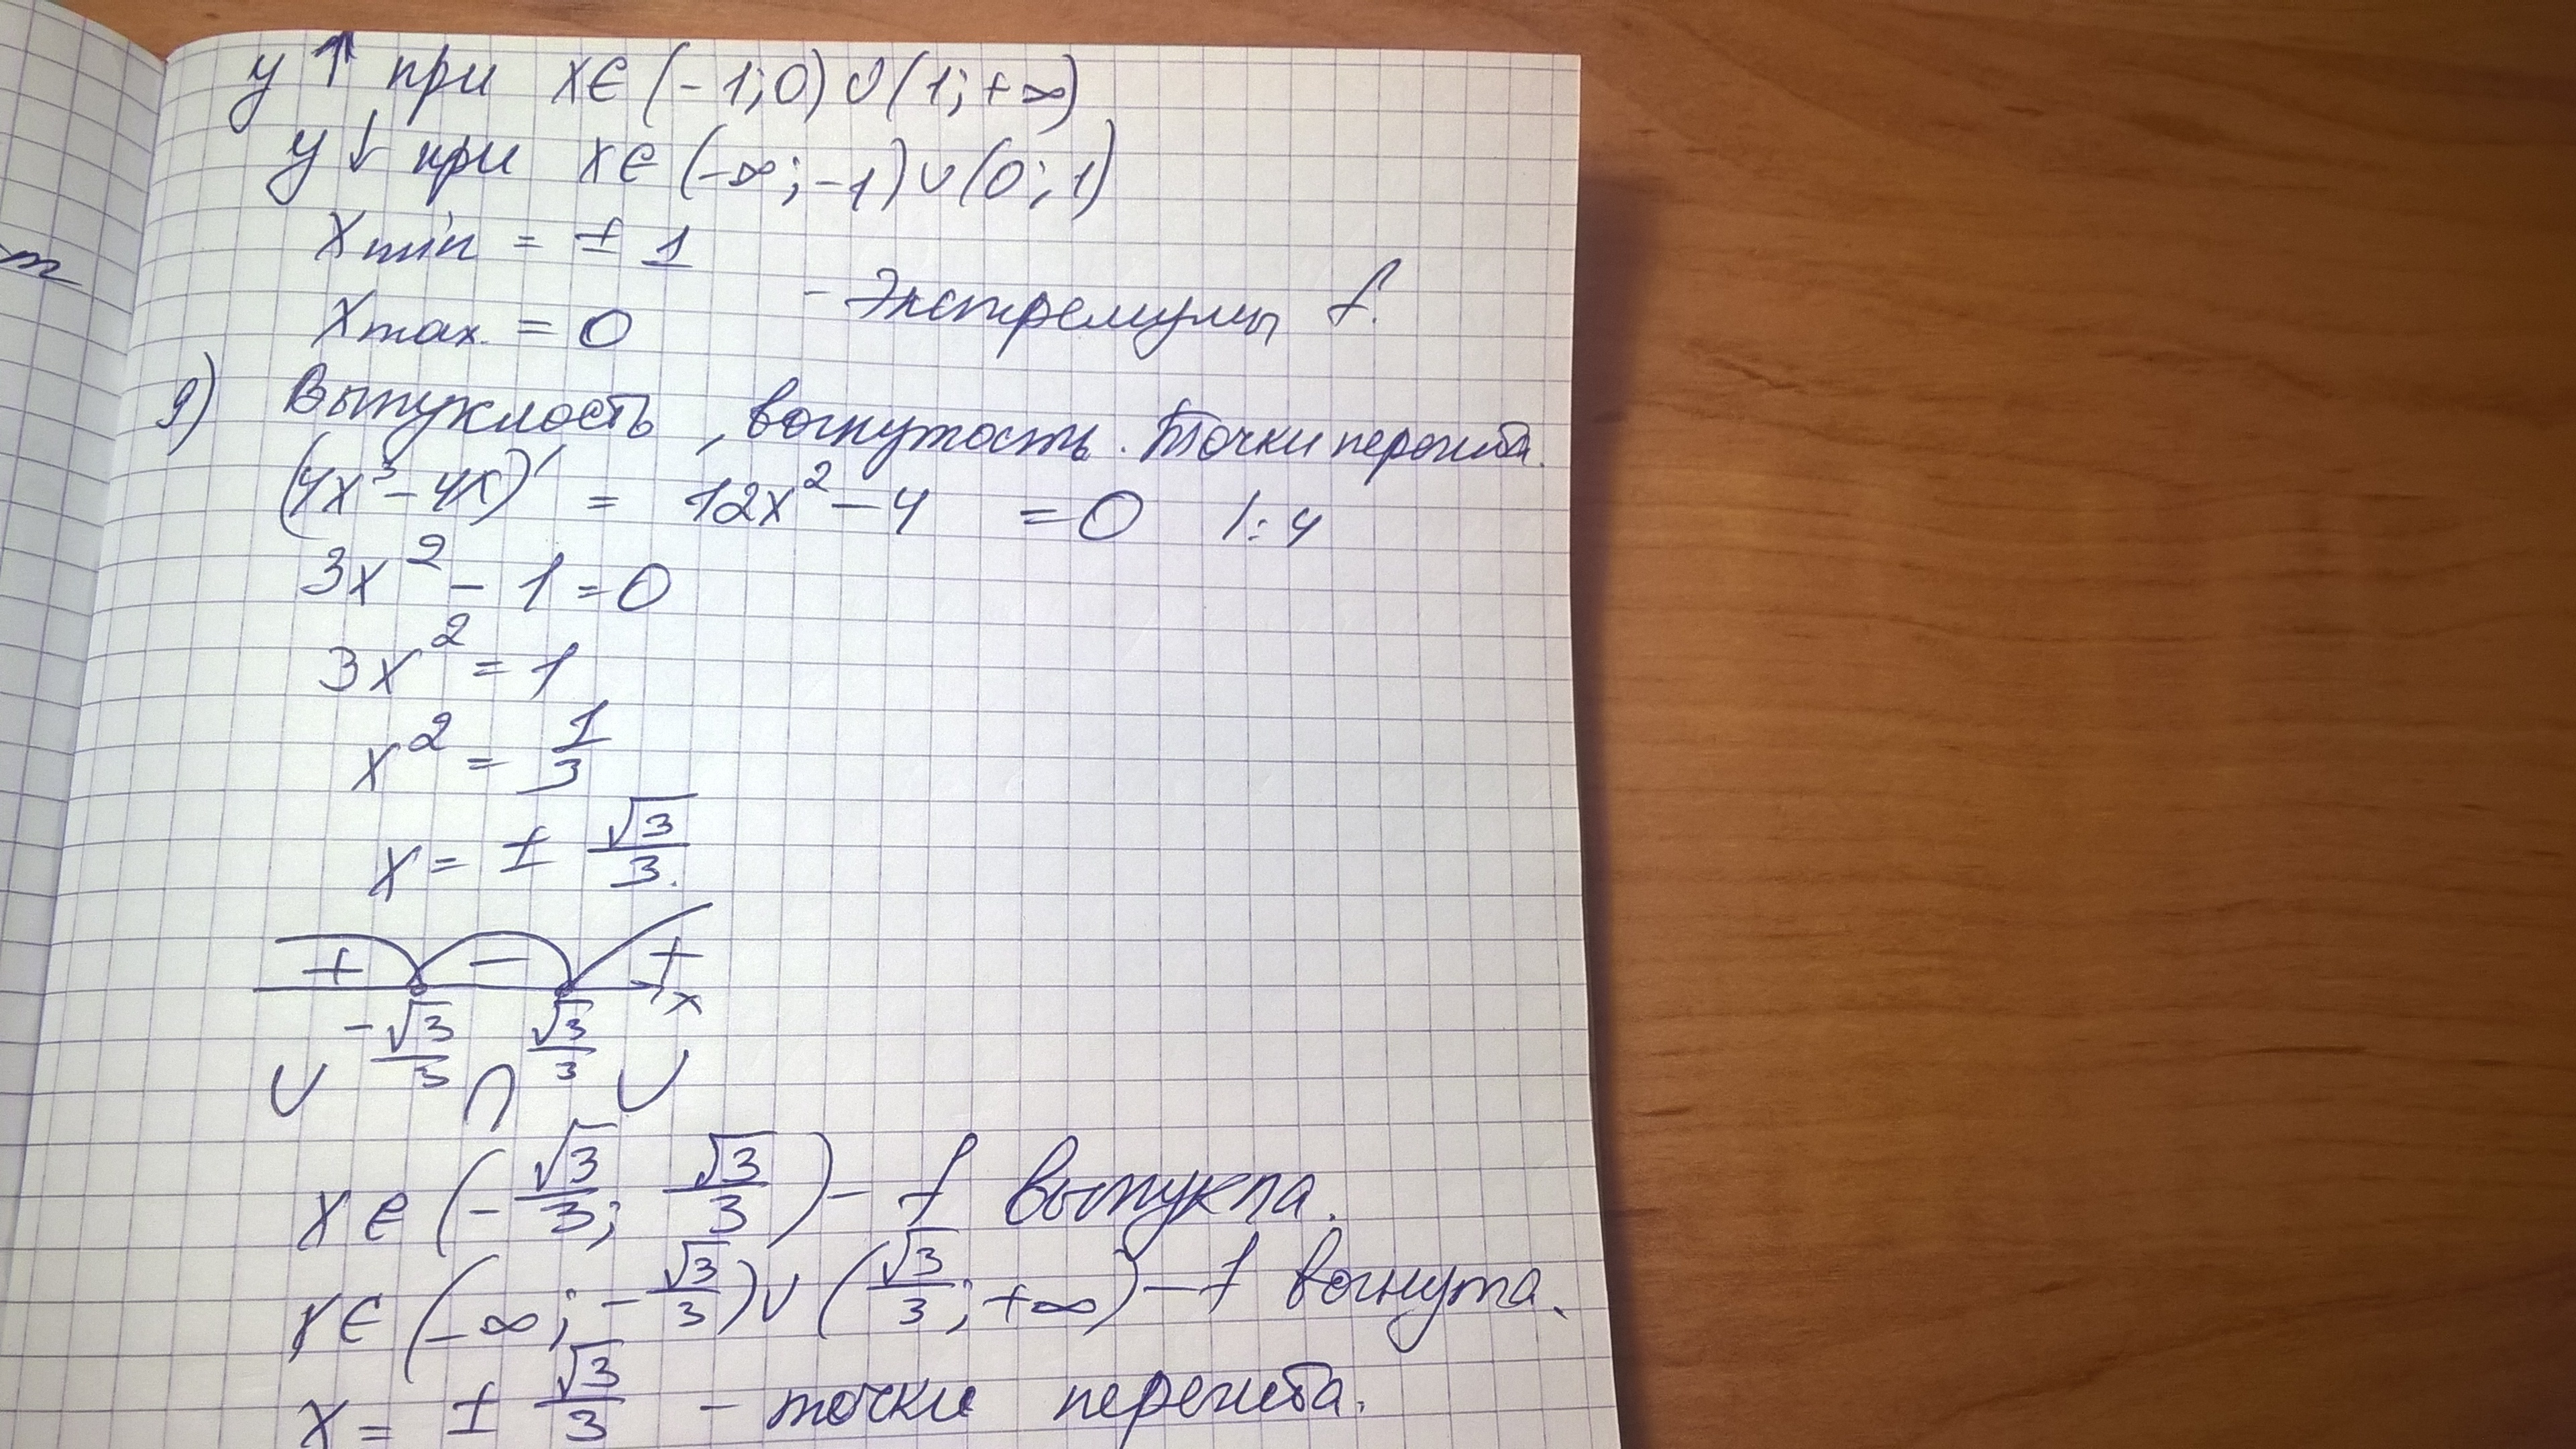 y ↑ при x∈(-1;0)∪(1;+∞)
y ↓ при x∈(-∞;-1)∪(0;1)
Xmin = ±1
Xmax. = 0 - Экстремумы f.
9) Выпуклость, вогнутость. Точки перегиба.
(4x³-4x)' = 12x²-4 =0 |:4
3x²-1=0
3x²=1
x²=1/3
x=±√3/3.
+ - + x
-√3/3 √3/3
∪ ∩ ∪
x∈(-√3/3; √3/3) - f выпукла.
x∈(-∞;-√3/3)∪(√3/3;+∞) - f вогнута.
x= ±√3/3 - точки перегиба.